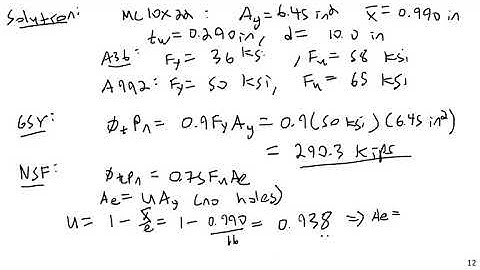 Solution: MC10X22: Ag=6.45 in² x̄=0.990 in
tw=0.290in, d= 10.0 in
A36: Fy= 36 ksi, Fu= 58 ksi
A992: Fy= 50 ksi, Fu= 65 ksi
GSY: ϕtPn= 0.9FyAg= 0.9(50 ksi)(6.45 in²)
= 290.3 kips
NSF: ϕtPn= 0.75FuAe
Ae= UAg (no holes)
U= 1 - x̄/l = 1 - 0.990/16 = 0.938 => Ae=
12